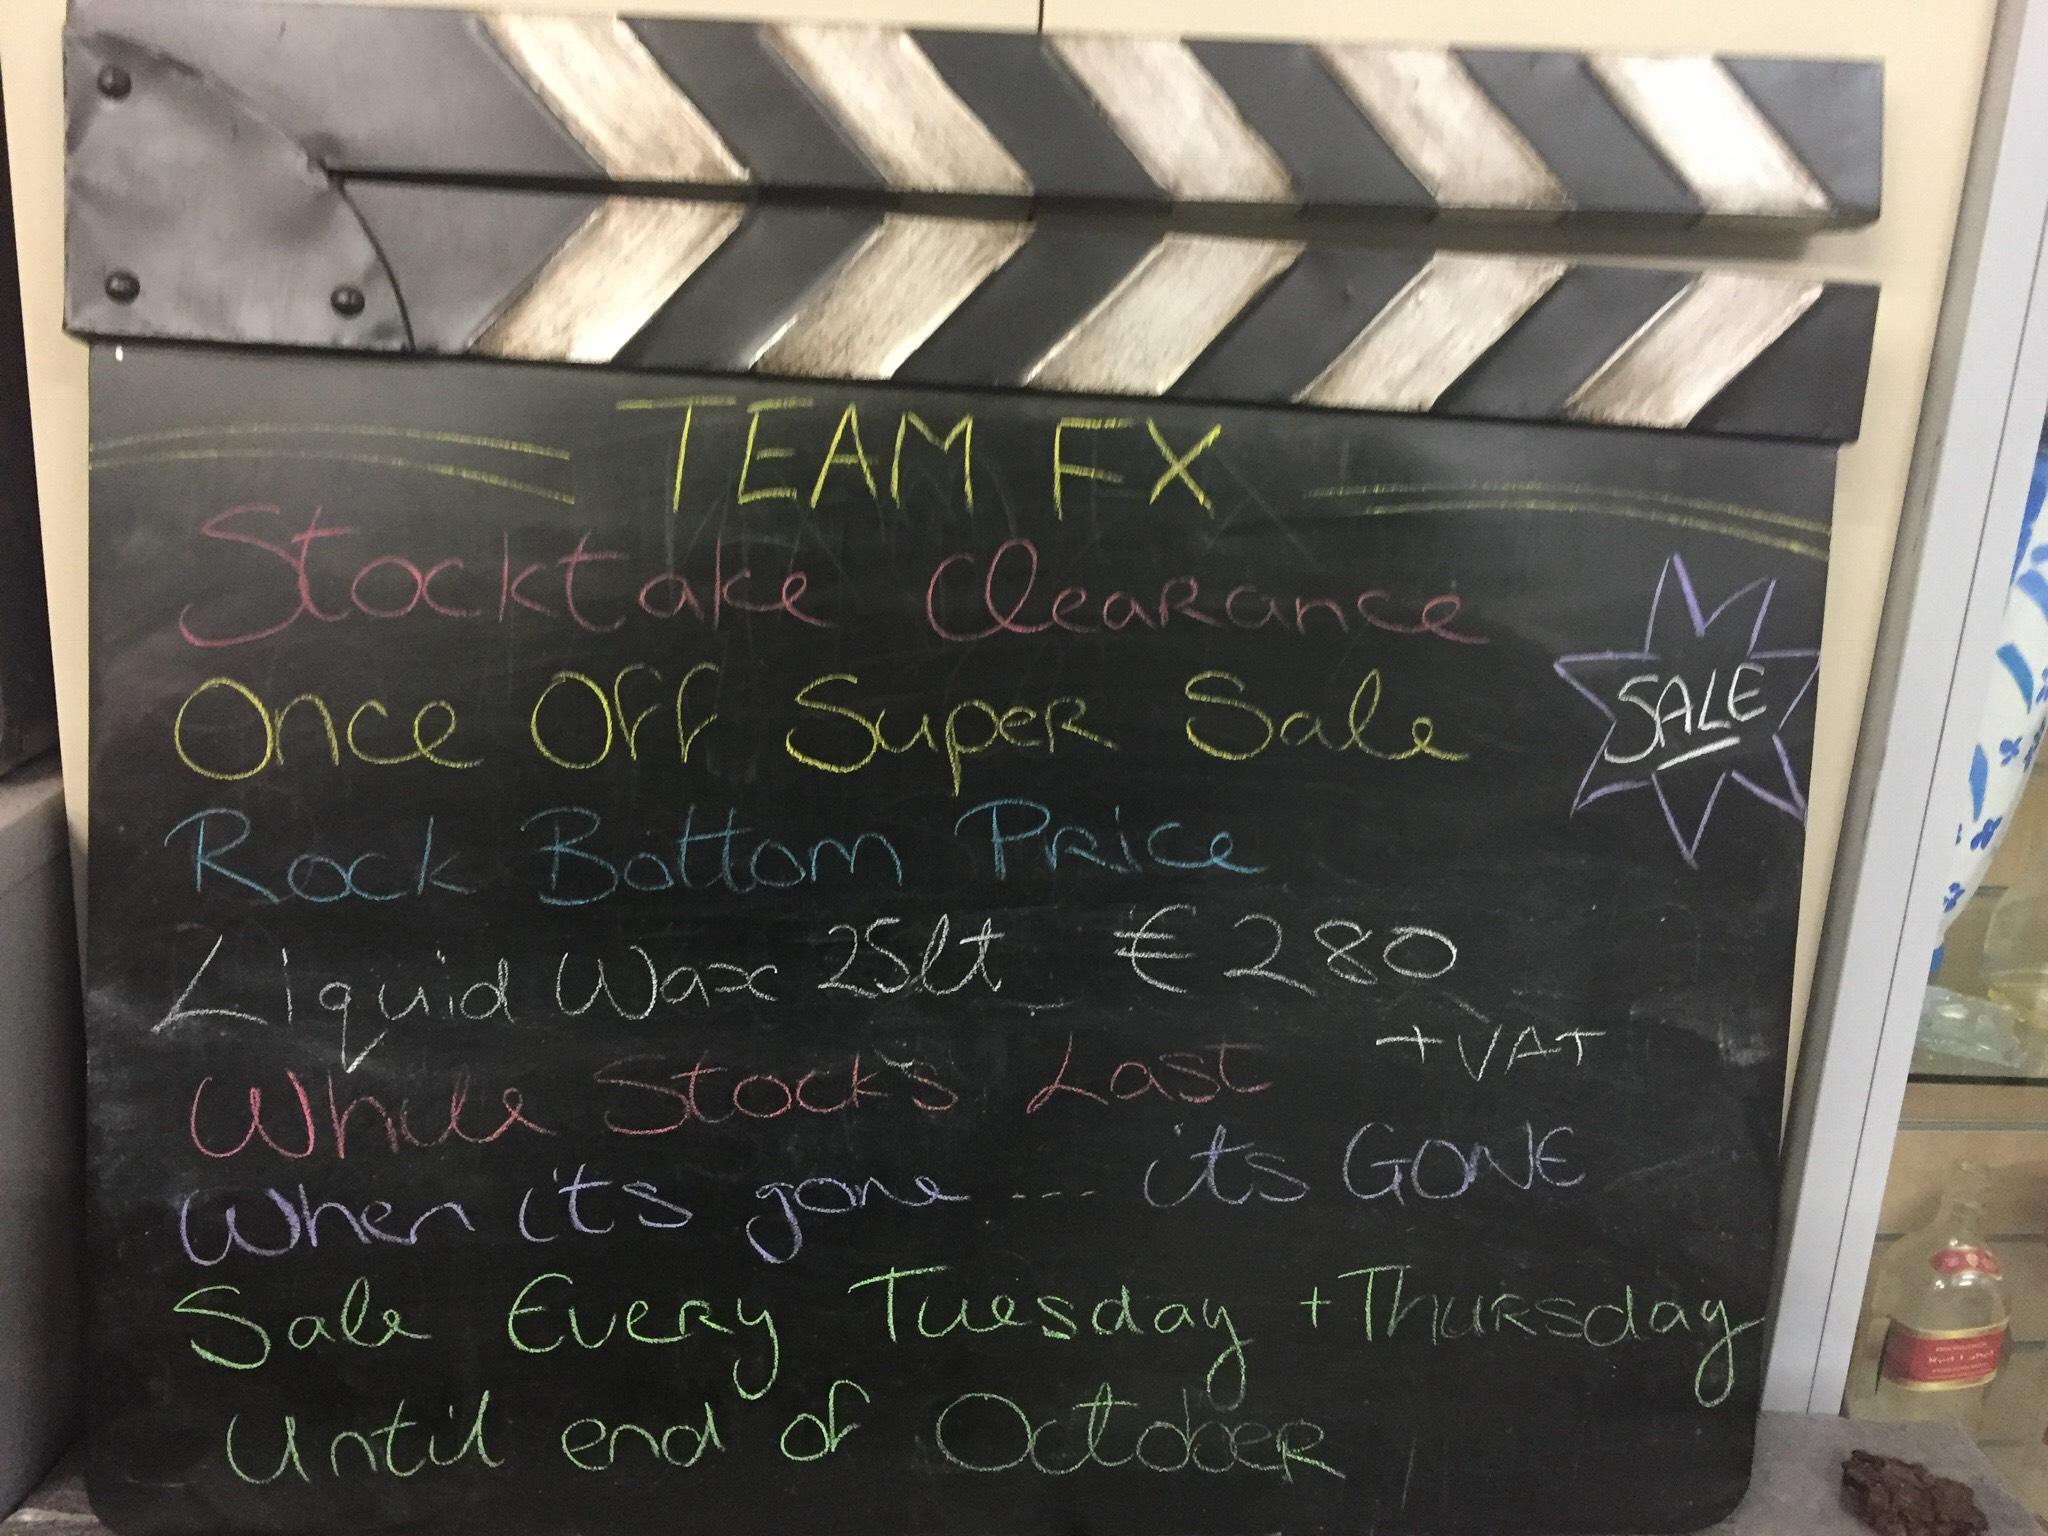 TEAM FX
Stocktake Clearance
Once Off Super Sale
SALE
Rock Bottom Price
Liquid Wax 25lt €280
+ VAT
While Stocks Last
When it's gone --- it's GONE
Sale Every Tuesday + Thursday
Until end of October
Red Label